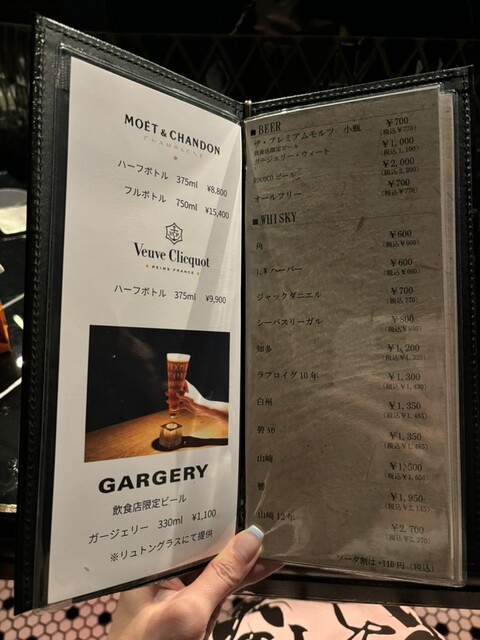 MOËT & CHANDON
CHAMPAGNE
ハーフボトル 375ml ¥8,800
フルボトル 750ml ¥15,400
Veuve Clicquot
REIMS FRANCE
ハーフボトル 375ml ¥9,900
GARGERY
飲食店限定ビール
ガージェリー 330ml ¥1,100
※リュトングラスにて提供
■BEER
ザ・プレミアムモルツ 小瓶 ¥700
(税込¥770)
飲食店限定ビール
ガージェリー・ウィート ¥1,000
(税込1,100)
ROCOCOビール ¥2,000
(税込2,200)
オールフリー ¥700
(税込¥770)
■WHISKY
角 ¥600
(税込¥660)
I.W ハーパー ¥600
(税込¥660)
ジャックダニエル ¥700
(税込 770)
シーバスリーガル ¥800
知多 ¥1,200
ラフロイグ10年 ¥1,300
(税込¥1,430)
白州 ¥1,350
(税込¥1,485)
碧Ao ¥1,350
(税込¥1,485)
山崎 ¥1,500
(税込¥1,650)
響 ¥1,950
(税込¥2,145)
山崎12年 ¥2,700
(税込¥2,970)
ソーダ割は+110円(税込)